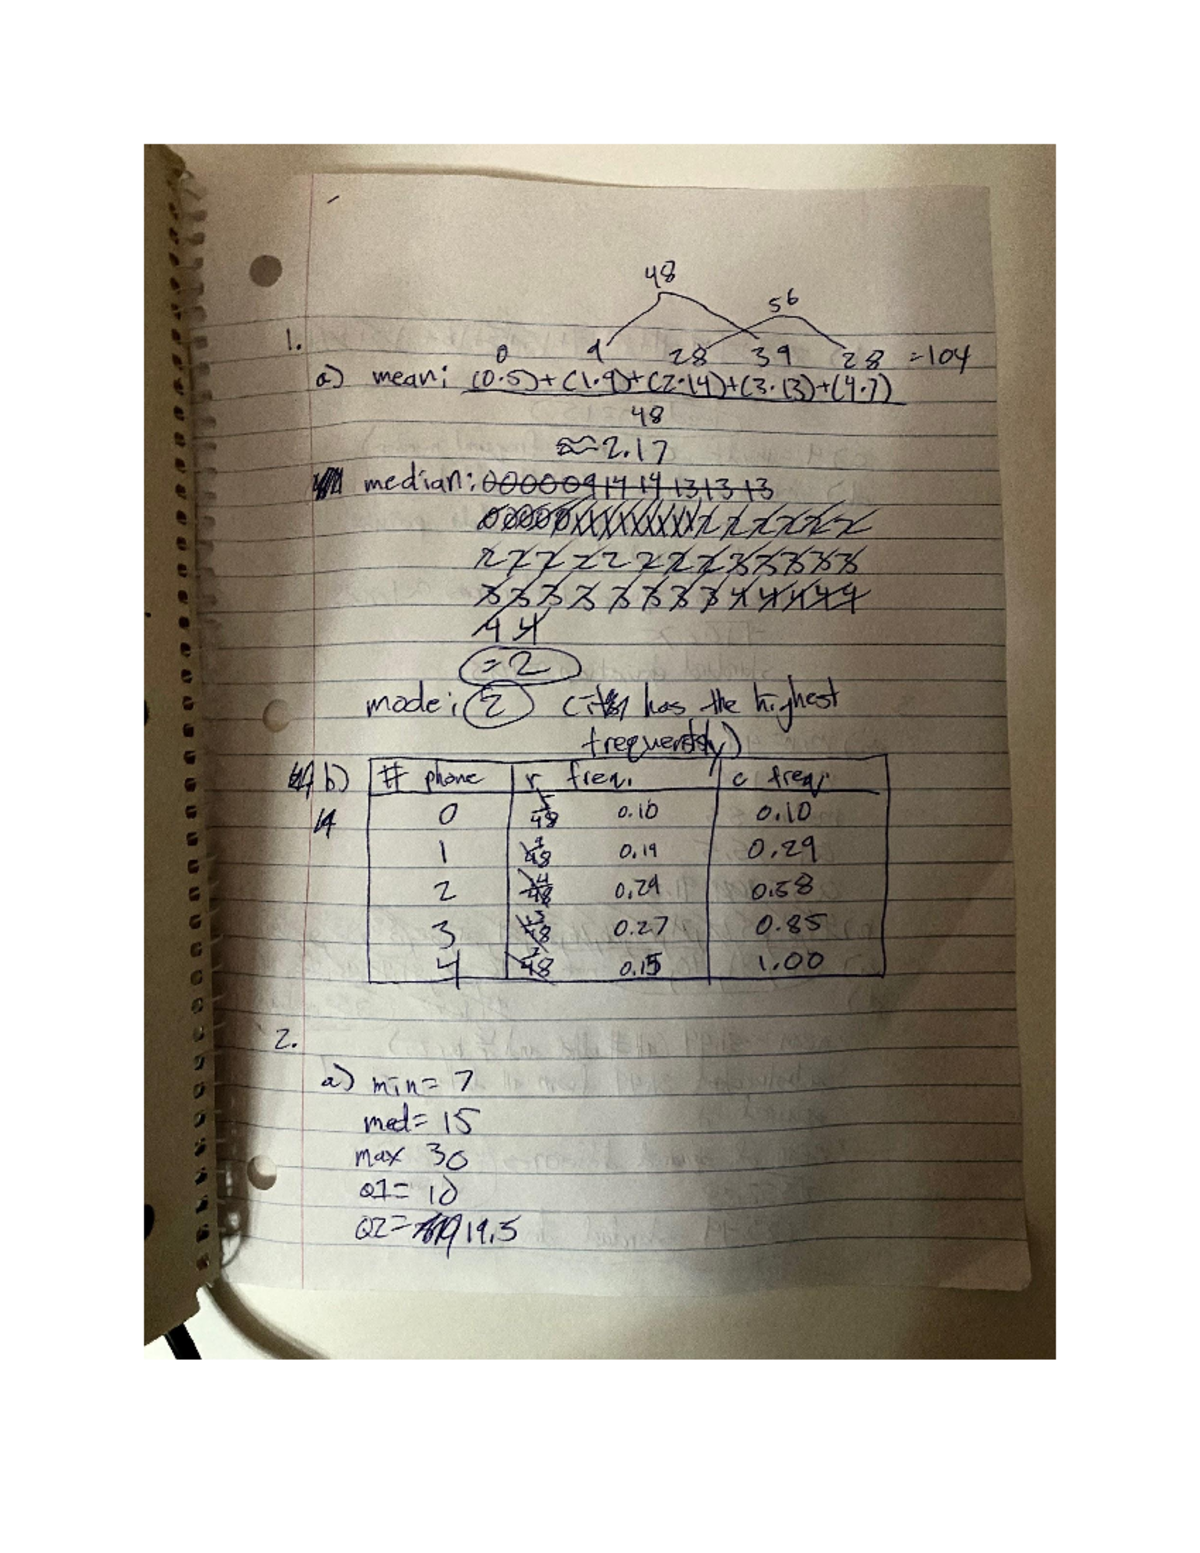 48
56
1.
0 9 28 39 28 =104
a) mean: (0·5)+(1·9)+(2·14)+(3·13)+(4·7)
48
≈2.17
median: 00000914 14 13 13 13
0 0 0 0 0 1 1 1 1 1 1 1 1 1 2 2 2 2 2 2
2 2 2 2 2 2 2 2 3 3 3 3 3
3 3 3 3 3 3 3 3 4 4 4 4 4
4 4
=2
mode: 2 (it has the highest
frequency)
b) # phone r freq. c freq.
0 5/48 0.10 0.10
1 9/48 0.19 0.29
2 14/48 0.29 0.58
3 13/48 0.27 0.85
4 7/48 0.15 1.00
2.
a) min= 7
med= 15
max 30
Q1= 10
Q2= 19.5